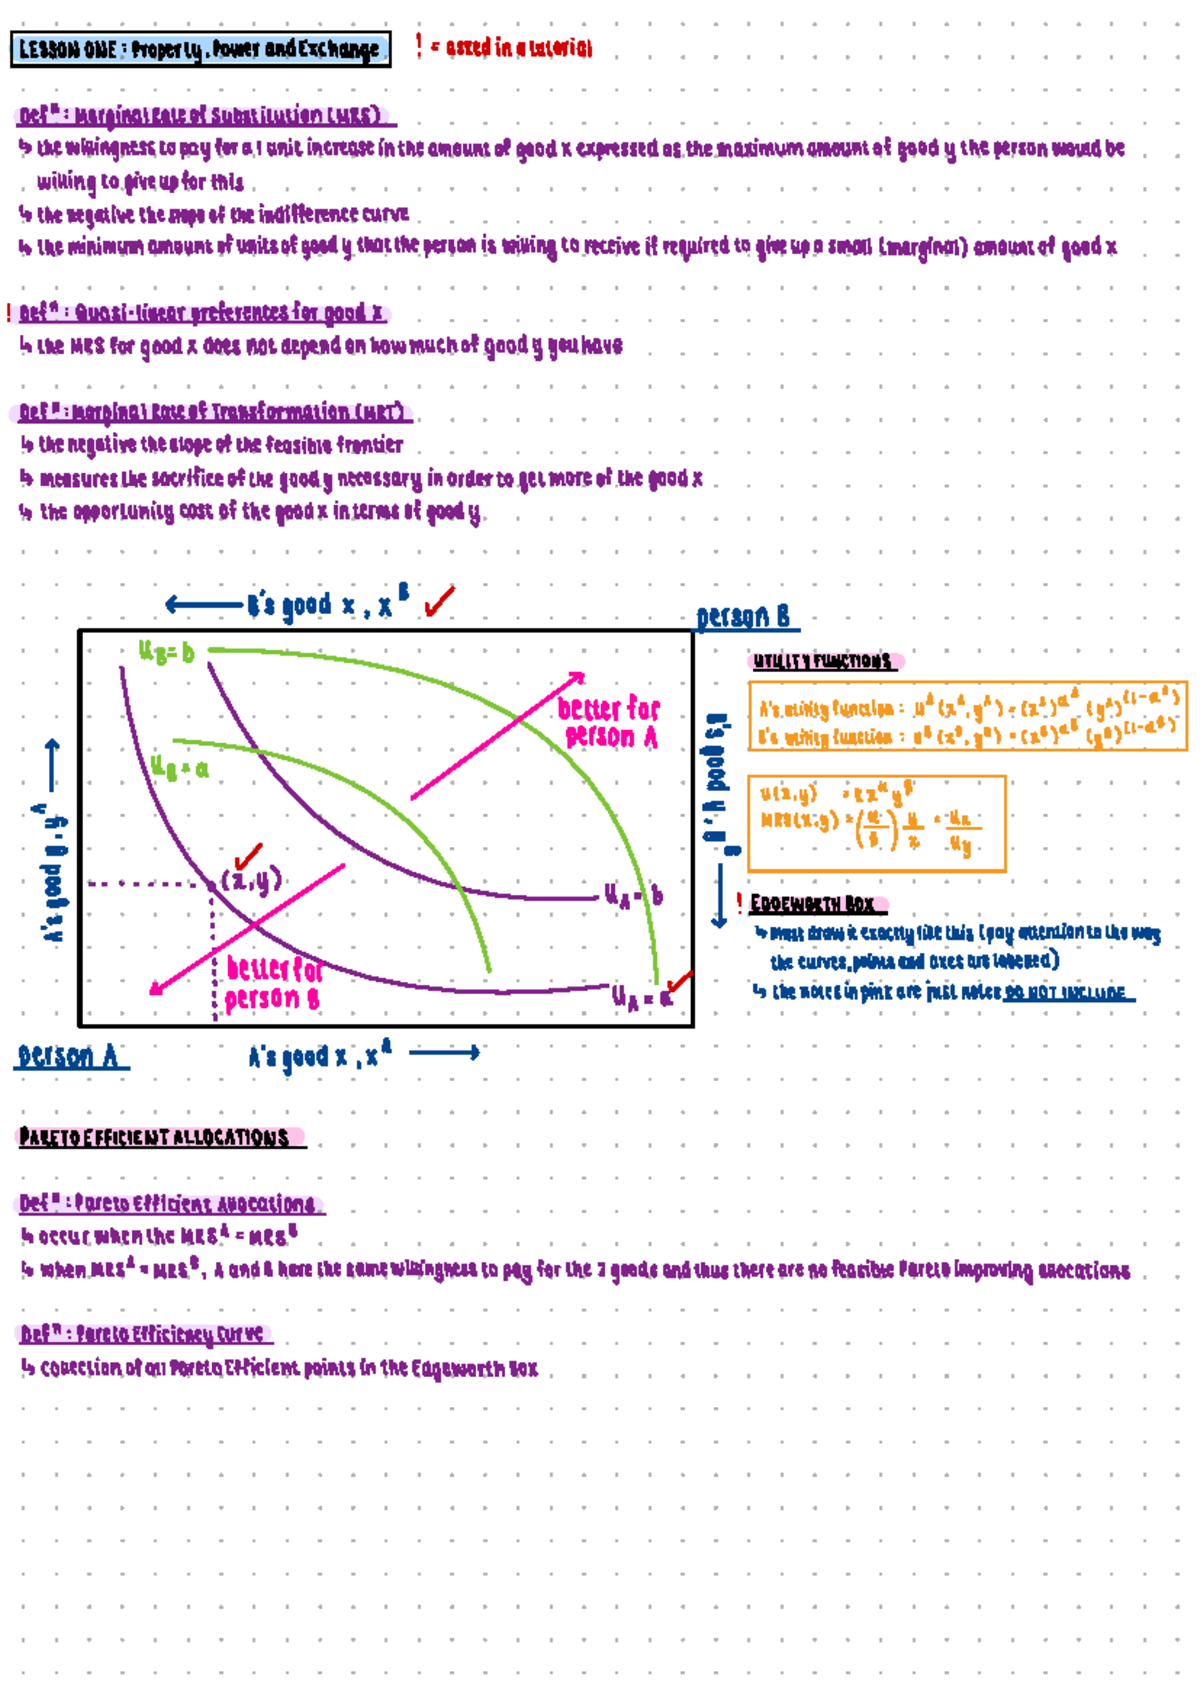 LESSON ONE : Property, Power and Exchange
! = asked in a tutorial
Defⁿ : Marginal Rate of Substitution (MRS)
↳ the willingness to pay for a 1 unit increase in the amount of good x expressed as the maximum amount of good y the person would be
willing to give up for this
↳ the negative the slope of the indifference curve
↳ the minimum amount of units of good y that the person is willing to receive if required to give up a small (marginal) amount of good x
! Defⁿ : Quasi-linear preferences for good x
↳ the MRS for good x does not depend on how much of good y you have
Defⁿ : Marginal Rate of Transformation (MRT)
↳ the negative the slope of the feasible frontier
↳ measures the sacrifice of the good y necessary in order to get more of the good x
↳ the opportunity cost of the good x in terms of good y
← B's good x , xᴮ ✓
person B
u_B = b
u_B = a
better for
person A
(x,y)
better for
person B
u_A = b
u_A = a
A's good y , yᴬ →
B's good y , yᴮ →
person A
A's good x , xᴬ →
UTILITY FUNCTIONS
A's utility function : uᴬ(xᴬ, yᴬ) = (xᴬ)^αᴬ (yᴬ)^(1-αᴬ)
B's utility function : uᴮ(xᴮ, yᴮ) = (xᴮ)^αᴮ (yᴮ)^(1-αᴮ)
u(x,y) = kx^α y^β
MRS(x,y) = (α/β) y/x = u_x/u_y
! EDGEWORTH BOX
↳ must draw it exactly like this (pay attention to the way
the curves, points and axes are labelled)
↳ the notes in pink are just notes DO NOT INCLUDE
PARETO EFFICIENT ALLOCATIONS
Defⁿ : Pareto Efficient Allocations
↳ occur when the MRSᴬ = MRSᴮ
↳ when MRSᴬ = MRSᴮ, A and B have the same willingness to pay for the 2 goods and thus there are no feasible Pareto improving allocations
Defⁿ : Pareto Efficiency Curve
↳ collection of all Pareto Efficient points in the Edgeworth Box